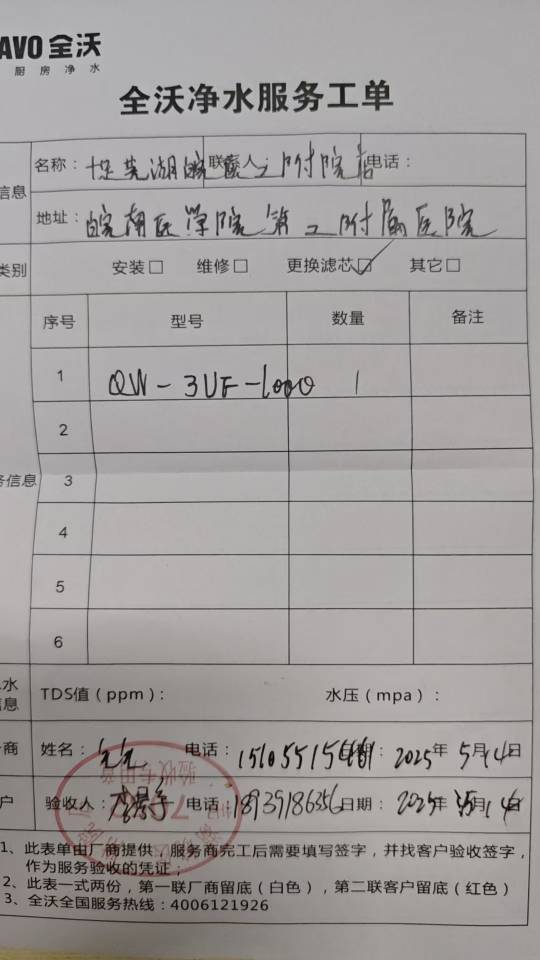 AVO 全沃
厨房净水
全沃净水服务工单
信息
名称： 芜湖皖 二附院店 联系人： 电话：
地址：皖南医学院第二附属医院
类别 安装□ 维修□ 更换滤芯☑ 其它□
序号 型号 数量 备注
1 QW-3UF-1000 1
2
务信息 3
4
5
6
水 TDS值（ppm）： 水压（mpa）：
信息
商 姓名： 电话： 日期：2025年5月14日
户 验收人： 电话：18939186356 日期：2025年5月14日
验收专用章
1、此表单由厂商提供，服务商完工后需要填写签字，并找客户验收签字，
作为服务验收的凭证；
2、此表一式两份，第一联厂商留底（白色），第二联客户留底（红色）
3、全沃全国服务热线：4006121926